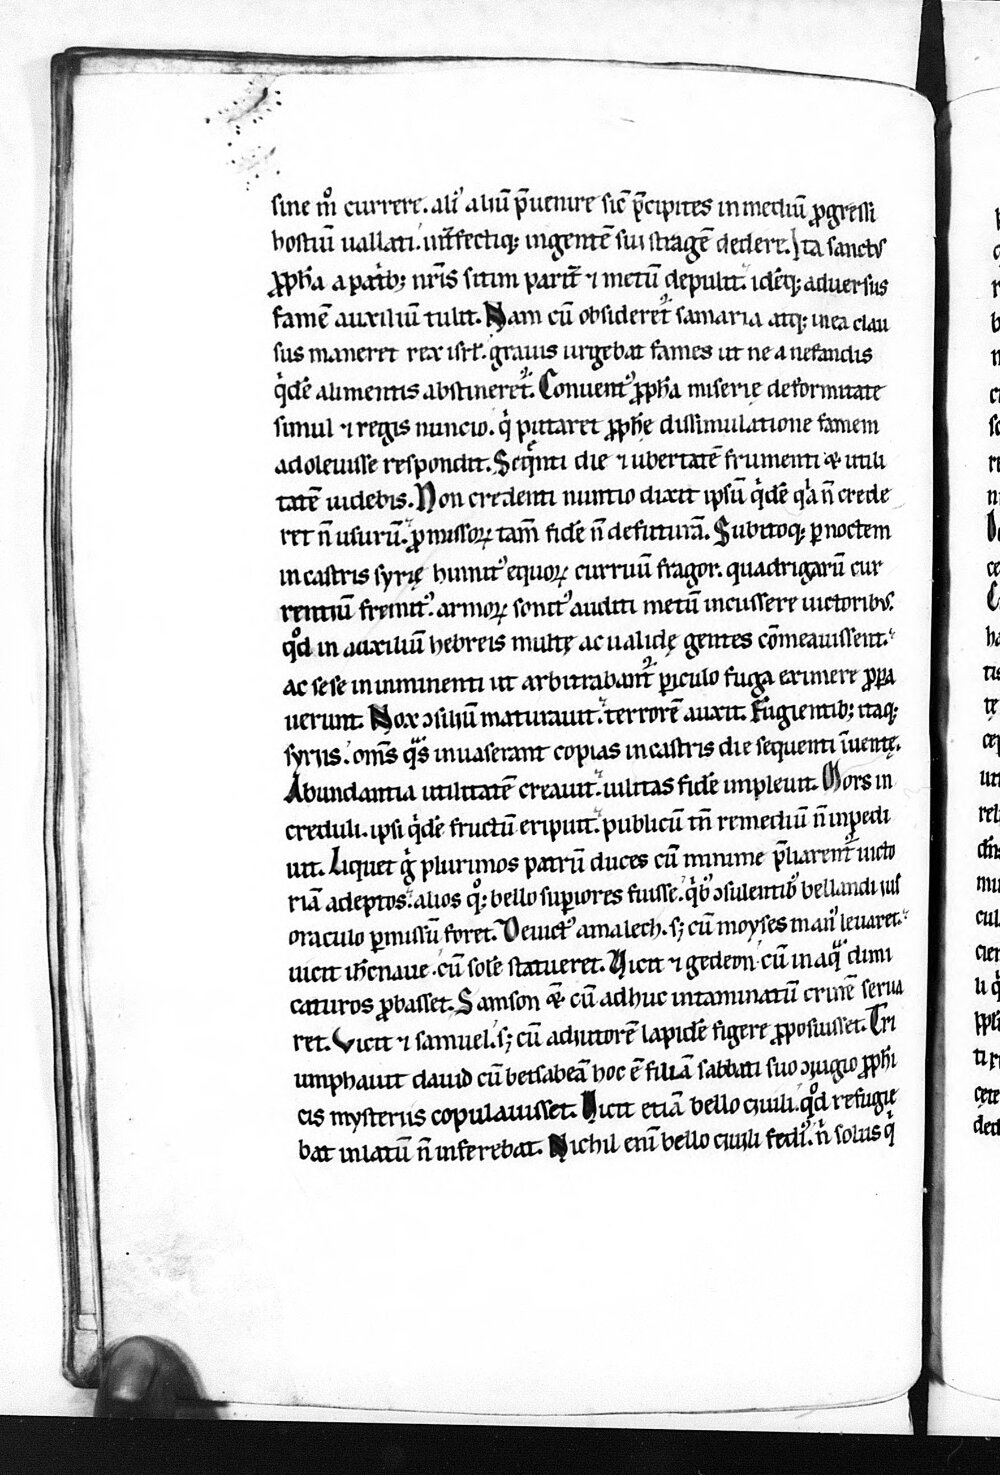 sine mͦ currere. aliꝰ aliū p̄uenire sic̄ p̄cipites in mediū ꝓgressi
hostiū uallati. int̄fectiq; ingentē sui stragē dedere. Ita sanctꝰ
ꝓph̄a a patⁱb; nr̄is sitim parit̄ ⁊ metū depulit. idēq; aduersus
famē auxiliū tulit. Nam cū obsideret᷑ samaria atq; in ea clau
sus maneret rex isrł. grauis urgebat fames ut ne a nefandis
qⁱdē alimentis abstineret᷑. Conuentꝰ ꝓph̄a miserię deformitate
simul ⁊ regis nuncio. qⁱ pittaret ꝓph̄e dissimulatione famem
adoleuisse respondit. Seqⁿti die ⁊ ubertatē frumenti & utili
tatē uidebis. Non credenti nuntio dixit ipsū qⁱdē qᵃ n̄ crede
ret n̄ usurū. ꝓmissoꝝ tam̄ fidē n̄ defutturā. Subitoq; ꝑ noctem
in castris syrię hinnitꝰ equoꝝ curruū fragor. quadrigarū cur
rentiū fremitꝰ. armoꝝ sonitꝰ auditi metū incussere uictoribꝰ.
qͦd in auxiliū hebreis multę ac ualidę gentes cōmeauissent.
ac sese in imminenti ut arbitrabant᷑ ꝑiculo fuga eximere ꝓpa
uerunt. Nox ɔsiliū maturauit. terrorē auxit. Fugientib; itaq;
syriis. om̄s qᵃs inuaserant copias in castris die sequenti īuentę.
Abundantia utilitatē creauit. uilitas fidē impleuit. Mors in
creduli. ipsi qⁱdē fructū eripuit. publicū tn̄ remediū n̄ inpedi
uit. Liquet gͥ plurimos patrū duces cū minime p̄liarent᷑ uicto
riā adeptos. alios qͦ; bello suꝑiores fuisse. qⁱbꝰ ɔsulentibꝰ bellandi ius
oraculo ꝑmissū foret. Deuictꝰ amalech. s; cū moyses manꝰ leuaret.
uicit ih̄c naue. cū sole statueret. Uicit ⁊ gedeon. cū in aqᵃ dimi
caturos ꝓbasset. Samson &̄ cū adhuc intaminatū crinē serua
ret. Vicit ⁊ samuel. s; cū adiutorē lapidē figere ꝓposuisset. Tri
umphauit dauid cū betsabeā hoc ē filiā sabbati suo ɔiugio ꝓph̄i
cis mysteriis copulauisset. Uicit etiā bello ciuili. qͦd refugie
bat inlatū n̄ inferebat. Nichil eni̅ bello ciuili fediꝰ. nⁱ solus qⁱ